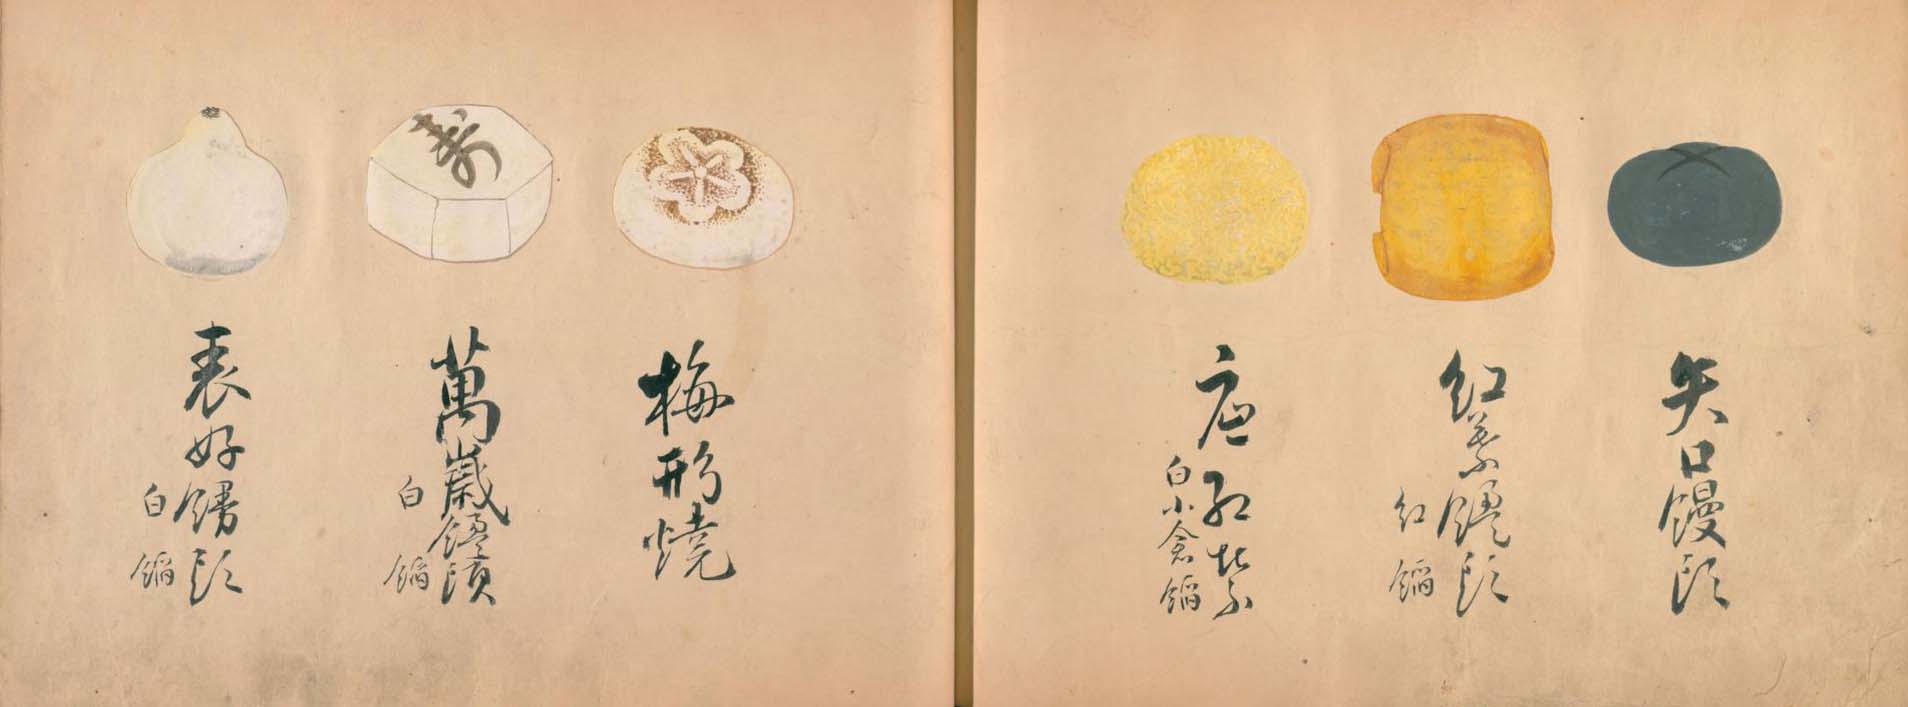 矢口饅頭
紅葉饅頭
紅餡
白小倉餡
梅形焼
寿
萬歳饅頭
白餡
表好饅頭
白餡